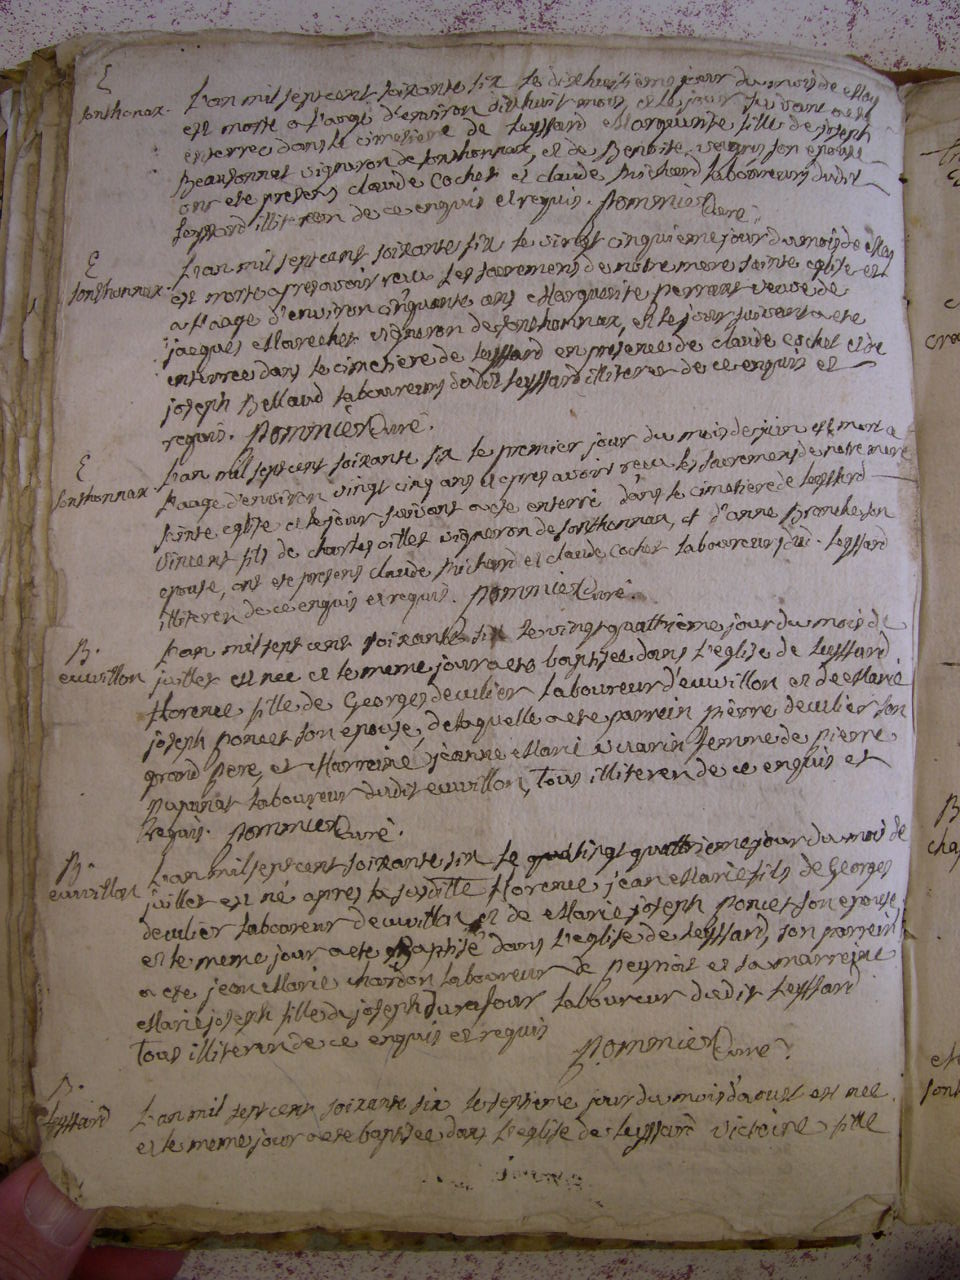 E
Sonthonax.
L'an mil sept cent soixante six le dixhuitieme jour du mois de May
est morte a l'aage d'environ dixhuit mois, et le jour suivant a ete
enterrée dans le cimetiere de Leyssard Marguerite fille de joseph
Beausonnet vigneron de sonthonnax, et de Benoite son epouse
ont ete presens claude Cochet et claude Michard laboureurs dudit
Leyssard illiteren de ce enquis et requis. Pommier Curé.
E
sonthonnax.
L'an mil sept cent soixante six le vingt cinquieme jour du mois de May
est morte apres avoir receu les sacremens de notre mere sainte eglise et
a l'aage d'environ cinquante ans Marguerite perrant veuve de
jacques Marechet vigneron de sonthonnax, et le jour suivant a ete
enterrée dans le cimetiere de Leyssard en presence de claude cochet et de
joseph Bellaud laboureurs dudit Leyssard illiterer de ce enquis et
requis. Pommier Curé.
E
sonthonnax
L'an mil sept cent soixante six le premier jour du mois de juin est mort a
l'aage d'environ vingt cinq ans et apres avoir receu les sacremens de notre mere
sainte eglise et le jour suivant a ete enterré dans le cimetiere de Leyssard
vincent fils de charles oillet vigneron de sonthonnax, et d'anne son
epouse, ont ete presens claude Michard et claude Cochet laboureurs dud. Leyssard
illiteren de ce enquis et requis. Pommier Curé.
B.
euvillon
L'an mil sept cent soixante six le vingt quattrieme jour du mois de
juillet est née et le meme jour a ete baptisée dans l'eglise de Leyssard
florence fille de Georges deculier laboureur d'euvillon et de Marie
joseph poncet son epouse, de laquelle a ete parrein pierre deculier son
grand pere, et Marreine jeanne Marie femme de pierre
laboureur dudit euvillon, Tous illiteren de ce enquis et
requis. Pommier Curé.
B.
euvillon
L'an mil sept cent soixante six le vingt quattrieme jour du mois de
juillet est né apres la susditte florence jean Marie fils de Georges
deculier laboureur d'euvillon et de Marie joseph poncet son epouse
et le meme jour a ete Baptisé dans l'eglise de Leyssard, son parrein
a ete jean Marie chardon laboureur de peyriat et sa marreine
Marie joseph fille de joseph durafour laboureur dudit Leyssard
Tous illiteren de ce enquis et requis
Pommier Curé.
B.
Leyssard
L'an mil sept cent soixante six le septieme jour du mois d'aoust est née
et le meme jour a ete baptisée dans l'eglise de Leyssard victoire fille